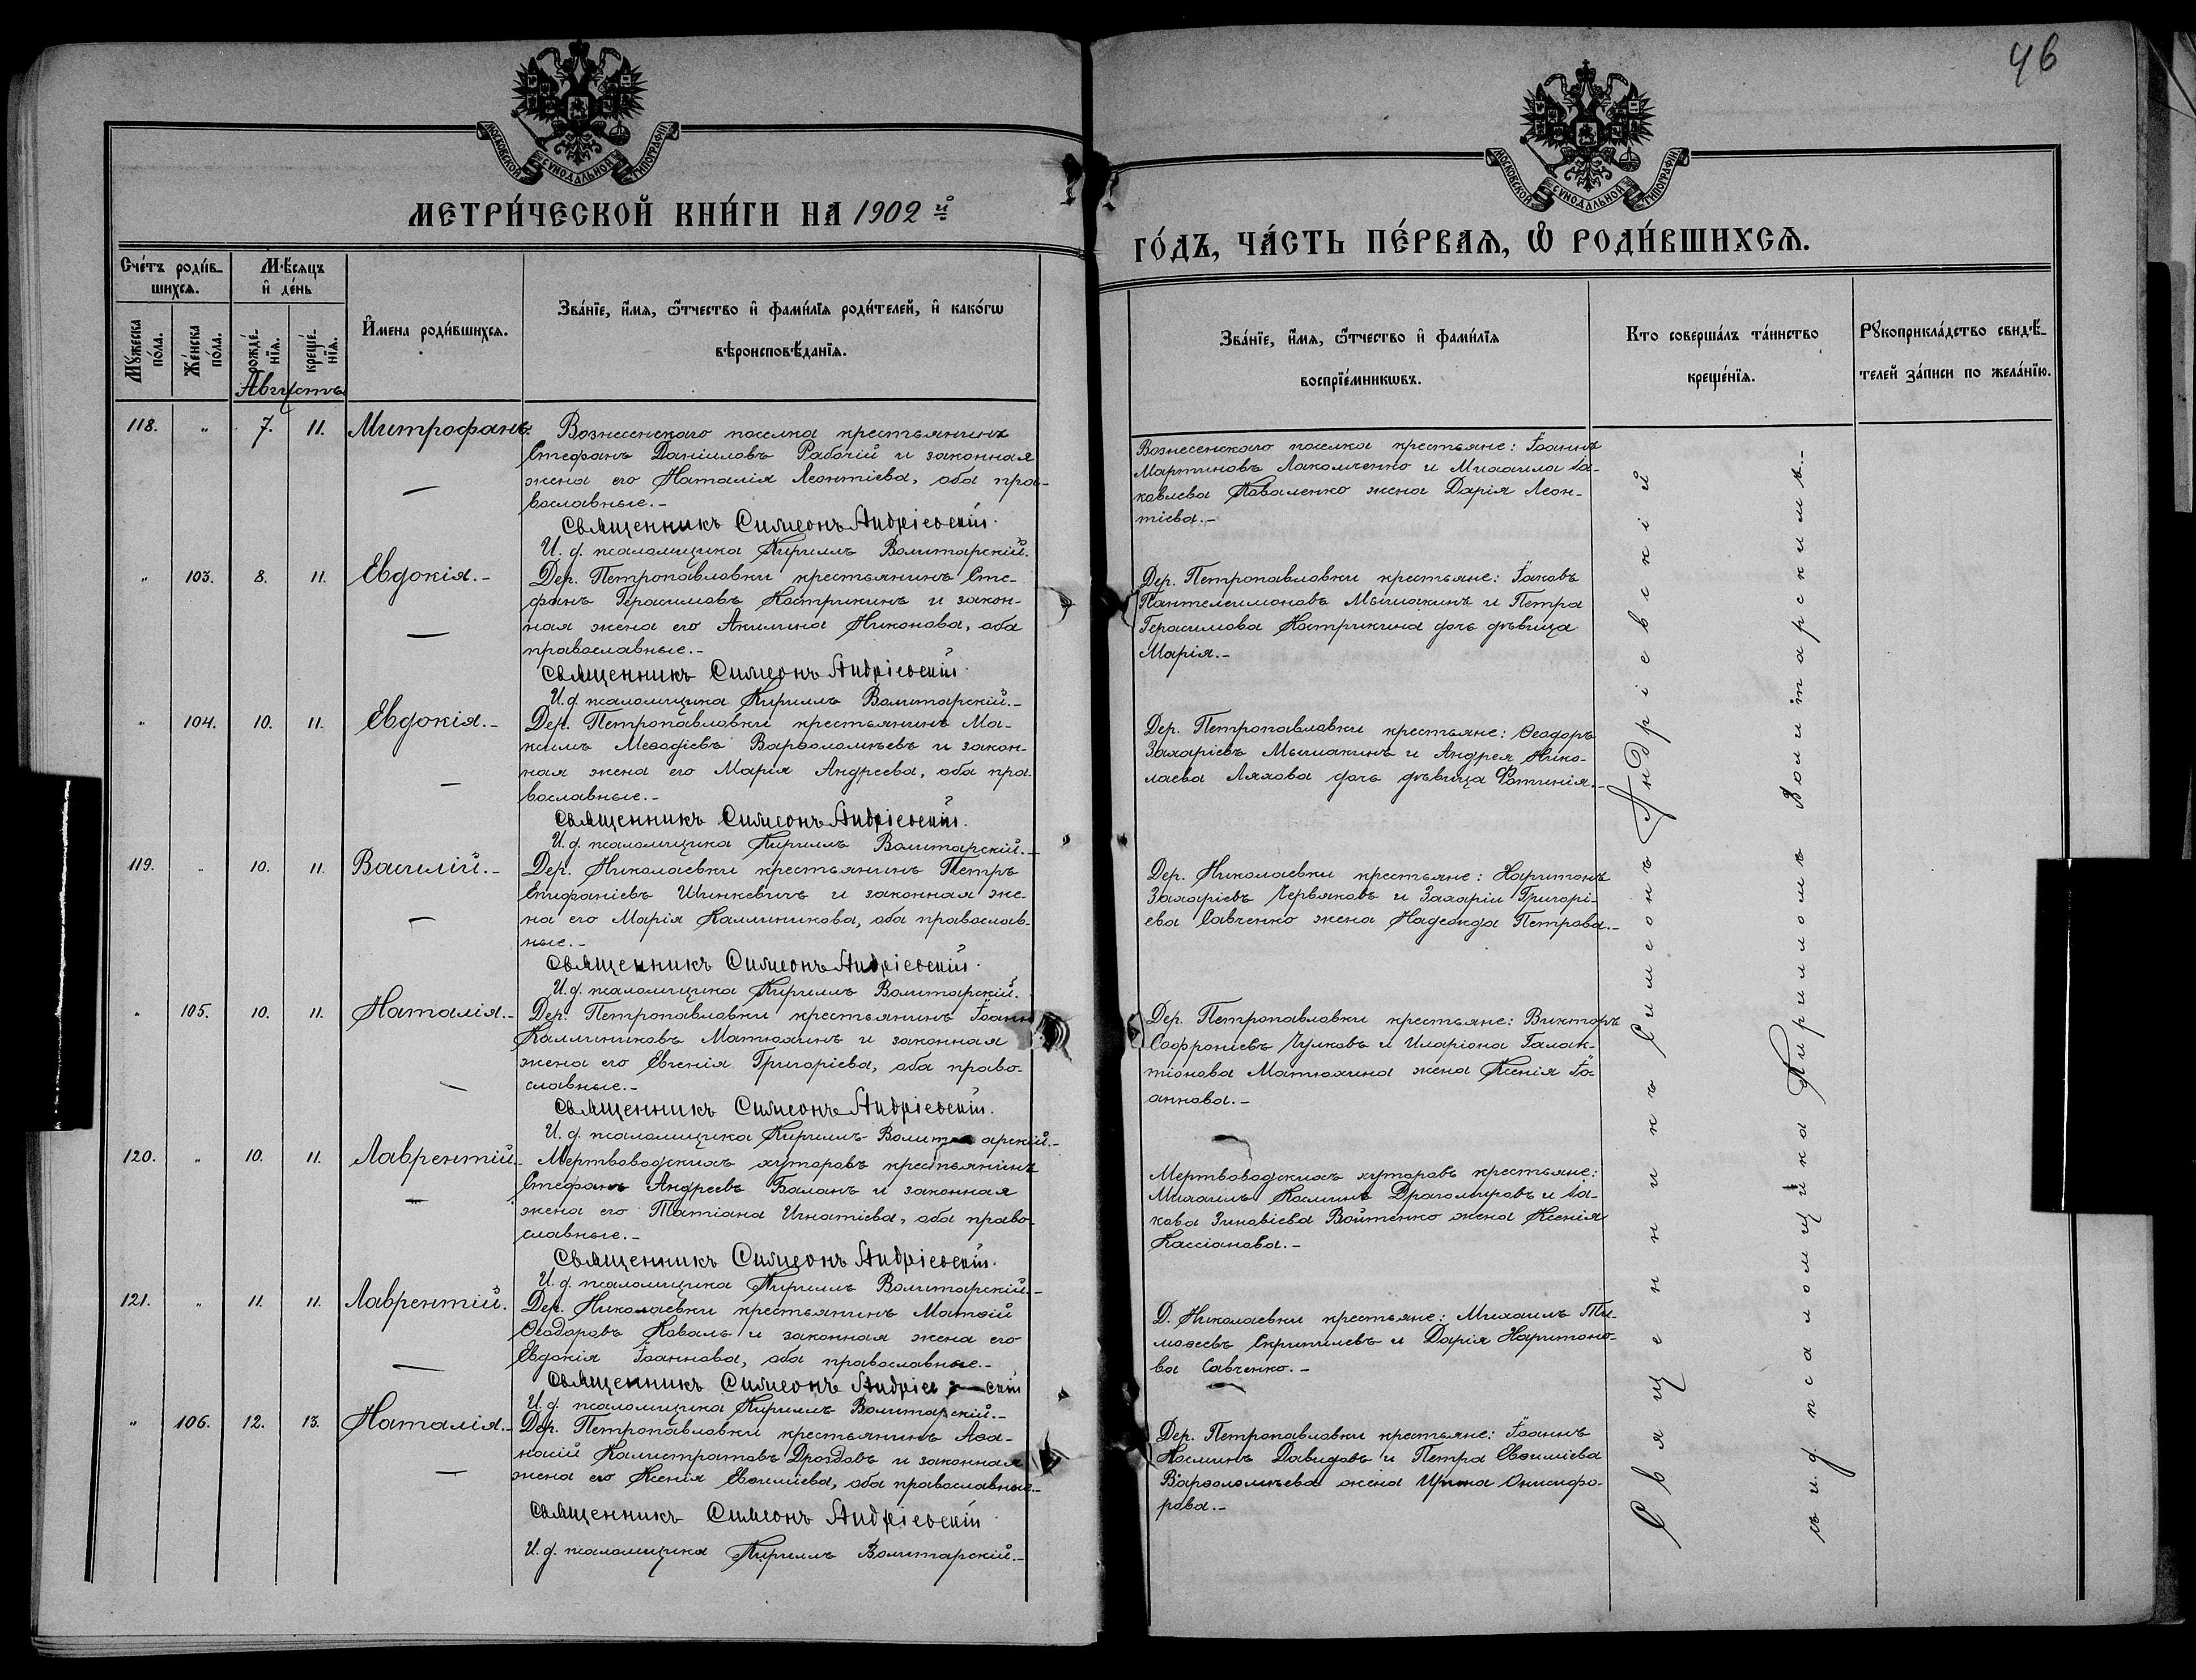 46
МОСКОВСКОЙ СѴНОДАЛЬНОЙ ТИПОГРАФІИ
МОСКОВСКОЙ СѴНОДАЛЬНОЙ ТИПОГРАФІИ
МЕТРИ́ЧЕСКОЙ КНИ́ГИ НА 1902й
ГО́ДЪ, ЧА́СТЬ ПЕ́РВАѦ, Ѡ҆ РОДИ́ВШИХСѦ.
Сче́тъ роди́в-
шихсѧ.
Мꙋ́жеска по́ла.
Же́нска по́ла.
Мѣ́сѧцъ
и҆ де́нь
рожде́-
нїѧ.
креще́-
нїѧ.
Августъ
И҆мена роди́вшихсѧ.
Зва́нїе, и҆́мѧ, ѻ҆́тчество и҆ фами́лїѧ роди́телей, и҆ како́гѡ
вѣроисповѣ́данїѧ.
Зва́нїе, и҆́мѧ, ѻ҆́тчество и҆ фами́лїѧ
воспрїе́мникѡвъ.
Кто совершáлъ та́инство
креще́нїѧ.
Рꙋкоприкла́дство свидѣ́-
телей за́писи по жела́нїю.
118. " 7. 11. Митрофанъ.
Вознесенскаго поселка крестьянинъ
Стефанъ Даніиловъ Рабочій и законная
жена его Наталія Леонтіева, оба пра-
вославные.-
Священникъ Симеонъ Андріевскій.
И. д. псаломщика Кириллъ Волитарскій.
Вознесенскаго поселка крестьяне: Іоаннъ
Мартиновъ Лакомченко и Михаила Іа-
ковлева Коваленко жена Дарія Леон-
тіева.-
" 103. 8. 11. Евдокія.-
Дер. Петропавловки крестьянинъ Сте-
фанъ Герасимовъ Кострикинъ и закон-
ная жена его Акилина Никонова, оба
православные.-
Священникъ Симеонъ Андріевскій.
И. д. псаломщика Кириллъ Волитарскій.-
Дер. Петропавловки крестьяне: Іаковъ
Пантелеимоновъ Мышакинъ и Петра
Герасимова Кострикина дочь дѣвица
Марія.-
" 104. 10. 11. Евдокія.-
Дер. Петропавловки крестьянинъ Ма-
ксимъ Меѳодіевъ Варѳоломѣевъ и закон-
ная жена его Марія Андреева, оба пра-
вославные.-
Священникъ Симеонъ Андріевскій.
И. д. псаломщика Кириллъ Волитарскій.-
Дер. Петропавловки крестьяне: Ѳеодоръ
Захаріевъ Мышакинъ и Андрея Нико-
лаева Ляхова дочь дѣвица Фотинія.-
119. " 10. 11. Василій.-
Дер. Николаевки крестьянинъ Петръ
Епифаніевъ Шинкевичъ и законная же-
на его Марія Каллиникова, оба православ-
ные.-
Священникъ Симеонъ Андріевскій.
И. д. псаломщика Кириллъ Волитарскій.
Дер. Николаевки крестьяне: Харитонъ
Захаріевъ Червяковъ и Захаріи Григорі-
ева Савченко жена Надежда Петрова.-
" 105. 10. 11. Наталія.-
Дер. Петропавловки крестьянинъ Іоаннъ
Каллиниковъ Матюхинъ и законная
жена его Евгенія Григоріева, оба право-
славные.-
Священникъ Симеонъ Андріевскій.
И. д. псаломщика Кириллъ Волитарскій.-
Дер. Петропавловки крестьяне: Викторъ
Софроніевъ Чулковъ и Иларіона Галак-
тіонова Матюхина жена Ксенія Іо-
аннова.-
120. " 10. 11. Лаврентій.-
Мертвоводскихъ хуторовъ крестьянинъ
Стефанъ Андреевъ Баланъ и законная
жена его Татіана Игнатіева, оба право-
славные.-
Священникъ Симеонъ Андріевскій.
И. д. псаломщика Кириллъ Волитарскій.-
Мертвоводскихъ хуторовъ крестьяне:
Михаилъ Косминъ Драгомировъ и Іа-
кова Зиновіева Войтенко жена Ксенія
Кассіанова.-
121. " 11. 11. Лаврентій.
Дер. Николаевки крестьянинъ Матѳій
Ѳеодоровъ Коваль и законная жена его
Евдокія Іоаннова, оба православные.-
Священникъ Симеонъ Андріевскій
И. д. псаломщика Кириллъ Волитарскій.-
Д. Николаевки крестьяне: Михаилъ Ти-
моѳеевъ Скрипилевъ и Дарія Харитоно-
ва Савченко.-
" 106. 12. 13. Наталія.-
Дер. Петропавловки крестьянинъ Аѳа-
насій Каллистратовъ Дроздовъ и законная
жена его Ксенія Евѳиміева, оба православные.-
Священникъ Симеонъ Андріевскій
И. д. псаломщика Кириллъ Волитарскій.-
Дер. Петропавловки крестьяне: Іоаннъ
Косминъ Давидовъ и Петра Евѳиміева
Варѳоломѣева жена Ирина Онисифо-
рова.-
Священникъ Симеонъ Андріевскій
съ и. д. псаломщика Кирилломъ Волитарскимъ.-